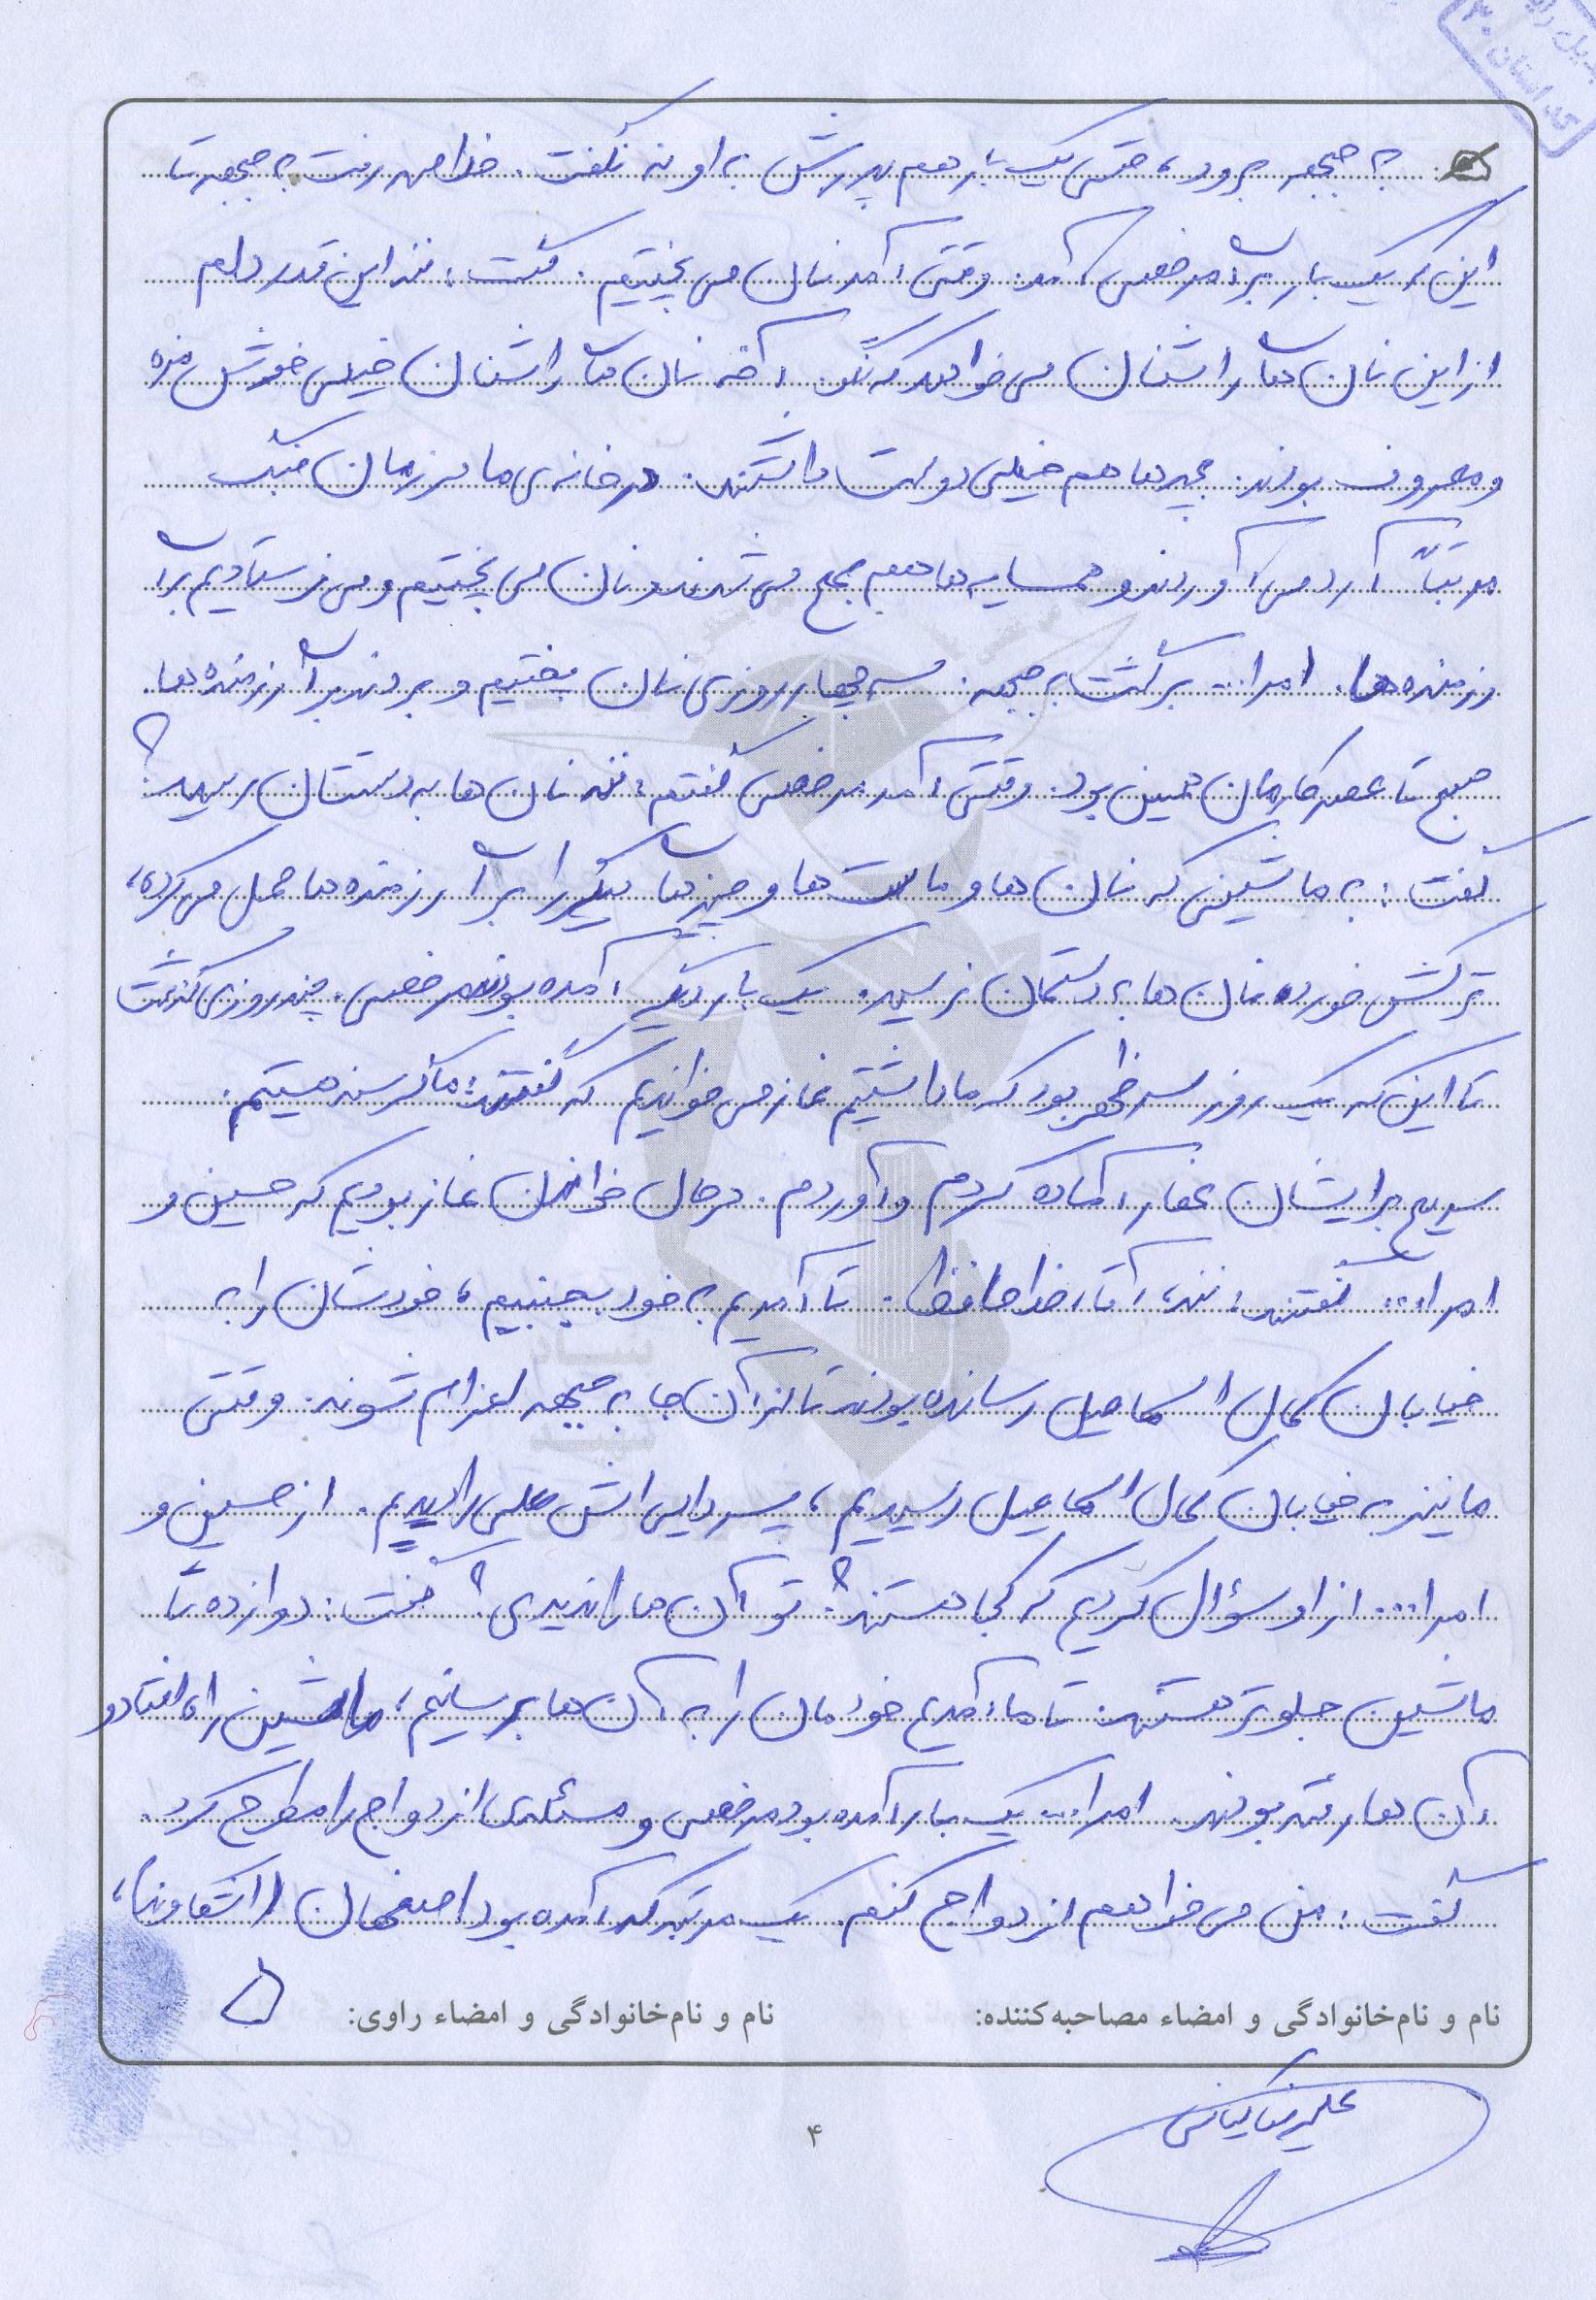 به جبهه برود، حتی یک بار هم پدرش به او نه نگفت. خلاصه رفت به جبهه تا
این که یک بار برای مرخصی آمد. وقتی آمد نان می پختیم. گفت: ننه این قدر دلم
از این نان های راشنان می خواهد که نگو. آخه نان های راشنان خیلی خوش مزه
و معروف بودند. بچه ها هم خیلی دوست داشتند. در خانه ی ما در زمان جنگ
مرتباً آرد می آوردند و همسایه ها هم جمع می شدند و نان می پختیم و می فرستادیم برای
رزمنده ها. امرا... برگشت به جبهه. سه چهار روزی نان پختیم و بردند برای رزمنده ها
صبح تا عصر کارمان همین بود. وقتی آمد مرخصی گفتم: ننه نان ها به دستتان رسید؟
گفت: به ماشینی که نان ها و ماست ها و چیزهای دیگر را برای رزمنده ها حمل می کرده،
ترکش خورده نان ها به دستمان نرسید. یک بار دیگر آمده بودند مرخصی. چند روزی گذشت
تا این که یک روز سر ظهر بود که ما داشتیم نماز می خواندیم که گفتند: ما گرسنه هستیم.
سریع برایشان غذا را آماده کردم و آوردم. در حال خواندن نماز بودیم که حسین و
امرا... گفتند: ننه، آقا، خداحافظ. تا آمدیم به خود بجنبیم، خودشان را به
خیابان کمال اسماعیل رسانده بودند تا از آن جا به جبهه اعزام شوند. وقتی
ما نیز به خیابان کمال اسماعیل رسیدیم، پسر دایی اش علی را دیدیم. از حسین و
امرا... از او سؤال کردیم که کجا هستند؟ تو آن ها را ندیدی؟ گفت: دوازده تا
ماشین جلوتر هستند. تا ما آمدیم خودمان را به آن ها برسانیم، ماشین راه افتاد و
آن ها رفته بودند. امرا... یک بار آمده بود مرخصی و مسئله ی ازدواج را مطرح کرد.
گفت: من می خواهم ازدواج کنم. یک مرتبه که آمده بود اصفهان (اشکاوند)،
نام و نام‌خانوادگی و امضاء مصاحبه‌کننده:
نام و نام‌خانوادگی و امضاء راوی:
علیرضا کیانی
۴